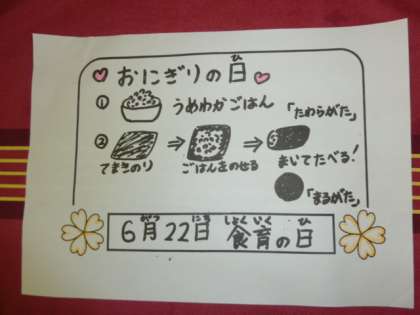 おにぎりの日
ひ
① うめわかごはん
「たわらがた」
② ⇒ ⇒
てまきのり ごはんをのせる まいてたべる!
「まるがた」
がつ にち しょく いく ひ
6月22日 食育の日